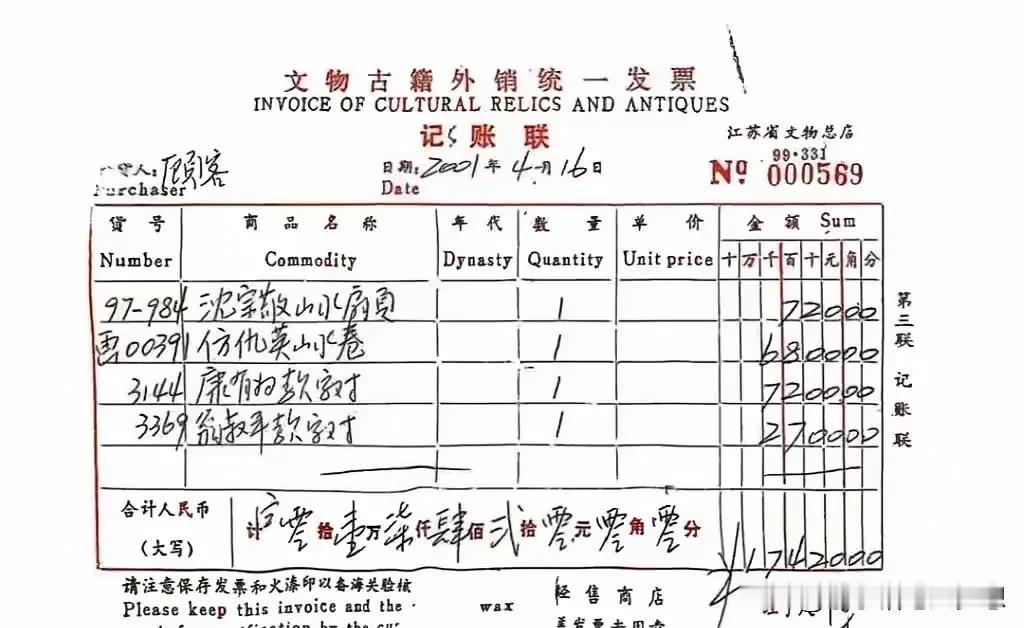 文物古籍外销统一发票
INVOICE OF CULTURAL RELICS AND ANTIQUES
记账联
江苏省文物总店
99·331
货人：顾客
Purchaser
日期：2001年4月16日
Date
Nº 000569
货号 商品名称 年代 数量 单价 金额 Sum
Number Commodity Dynasty Quantity Unit price 十万千百十元角分
97-984 沈宗敬山水扇页 1 72000
画00391 仿仇英山水卷 1 680000
3144 康有为款字对 1 720000
3369 翁叔平款字对 1 270000
合计人民币
(大写)
计零拾壹万柒仟肆佰贰拾零元零角零分
¥1742000
第三联 记账联
请注意保存发票和火漆印以备海关验核
Please keep this invoice and the wax
经售商店
盖发票专用章